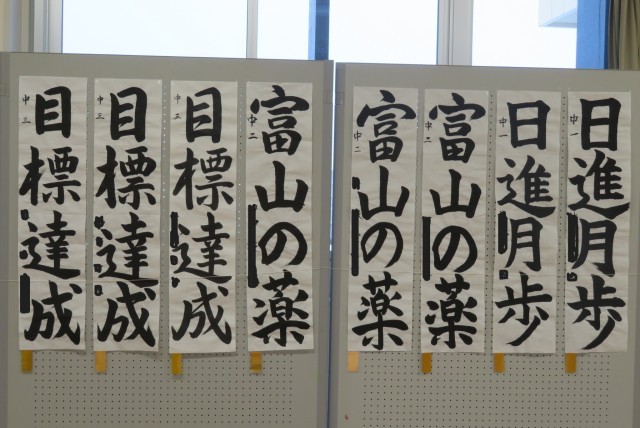 日進月歩
中一
日進月歩
中一
富山の薬
中二
富山の薬
中二
富山の薬
中二
目標達成
中三
目標達成
中三
目標達成
中三